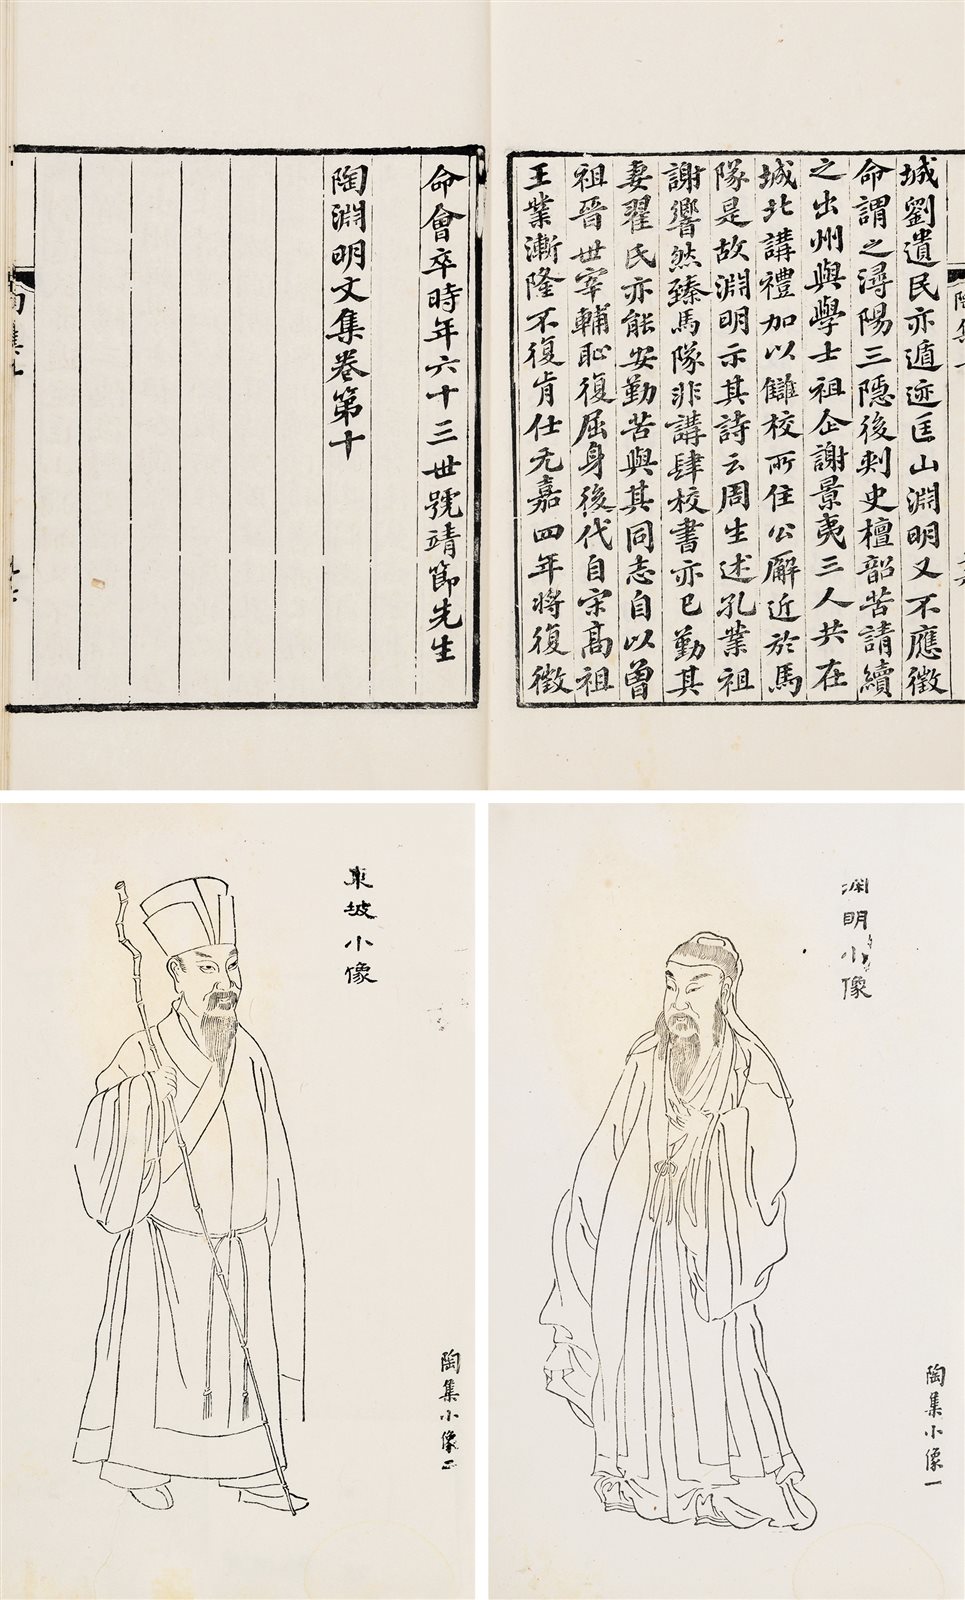 城劉遺民亦遁迹匡山淵明又不應徵
命謂之潯陽三隱後刺史檀韶苦請續
之出州與學士祖企謝景夷三人共在
城北講禮加以讎校所住公廨近於馬
隊是故淵明示其詩云周生述孔業祖
謝響然臻馬隊非講肆校書亦已勤其
妻翟氏亦能安勤苦與其同志自以曾
祖晉世宰輔恥復屈身後代自宋高祖
王業漸隆不復肯仕元嘉四年將復徵
命會卒時年六十三世號靖節先生
陶淵明文集卷第十
淵明小像
陶集小像一
東坡小像
陶集小像二